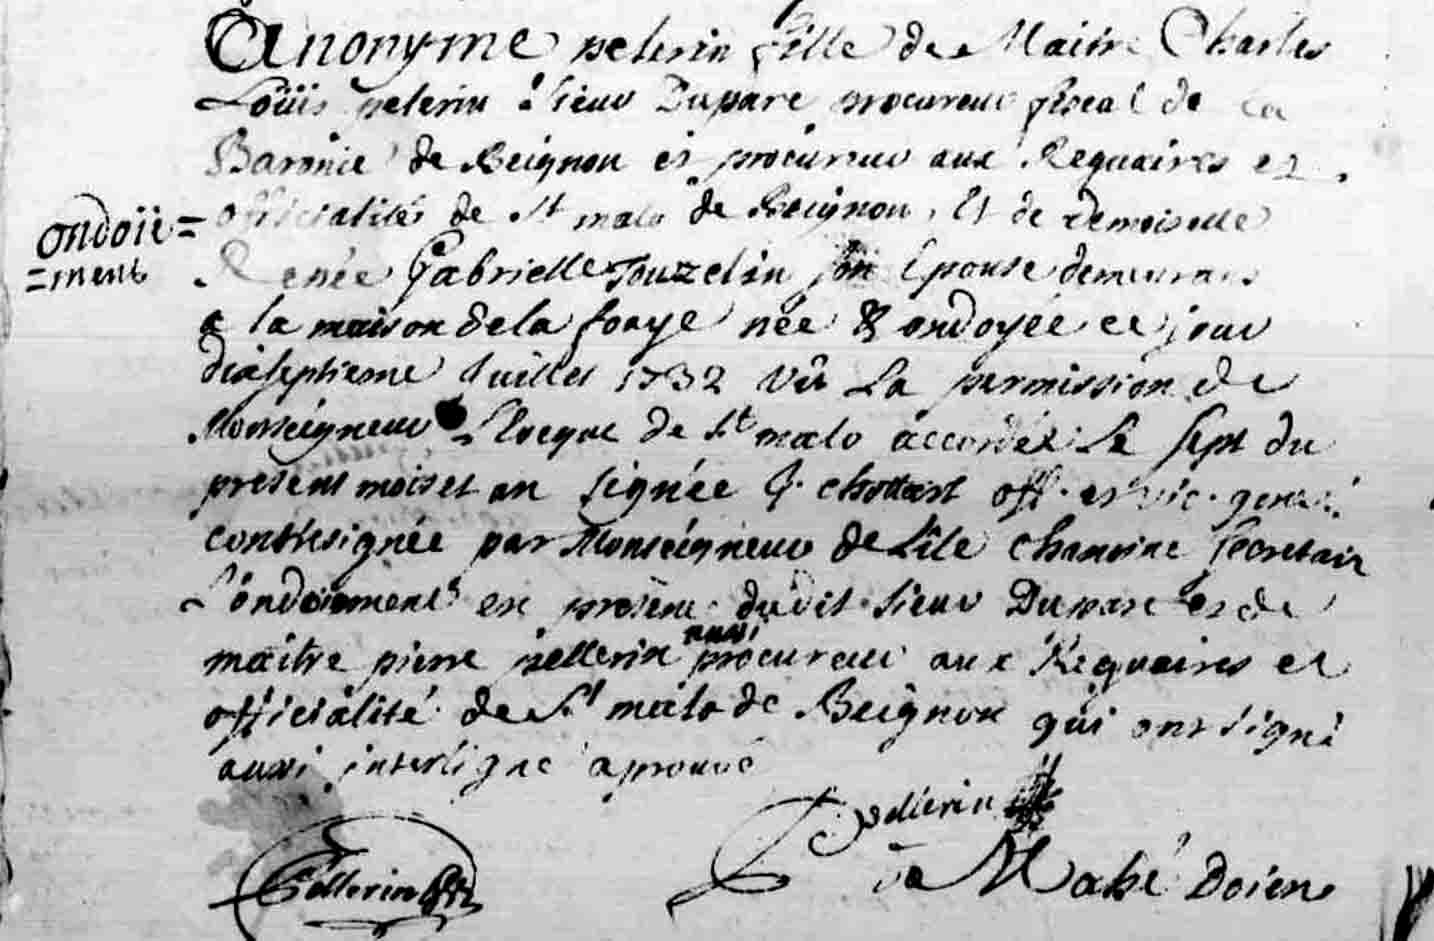 Anonyme pelerin fille de Maitre Charles
Loüis pelerin Sieur Duparc procureur fiscal de la
Baronie de Beignon et procureur aux Requaires et
officialités de St malo de Beignon, Et de demoiselle
ondoïe=
=ment
Renée Gabrielle Jouzelin son Epouse demeurans
a la maison de la fouye née & ondoyée ce jour
dixseptieme Juillet 1732 vû La permission de
Monseigneur L'Eveque de St malo accordée Le sept du
present mois et an signée off. et vic. general
contresignée par Monseigneur de Lile chanoine secretair
L'ondoiement en presence dudit Sieur Duparc et de
maitre pierre pellerin aussi procureur aux Requaires et
officialité de St malo de Beignon qui ont signé
aussi interligne aprouvé
Pellerin
Pellerin
Mahé Doien